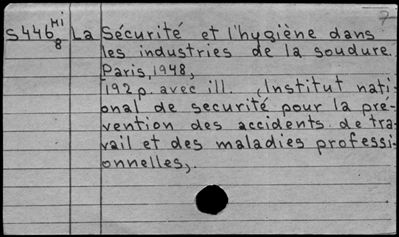 Hi 7
S446 La Sécurité et l'hygiène dans
8 les industries de la soudure.
Paris, 1948,
192p. avec ill. (Institut nati-
onal de securité pour la pre-
vention des accidents de tra-
vail et des maladies professi-
onnelles).